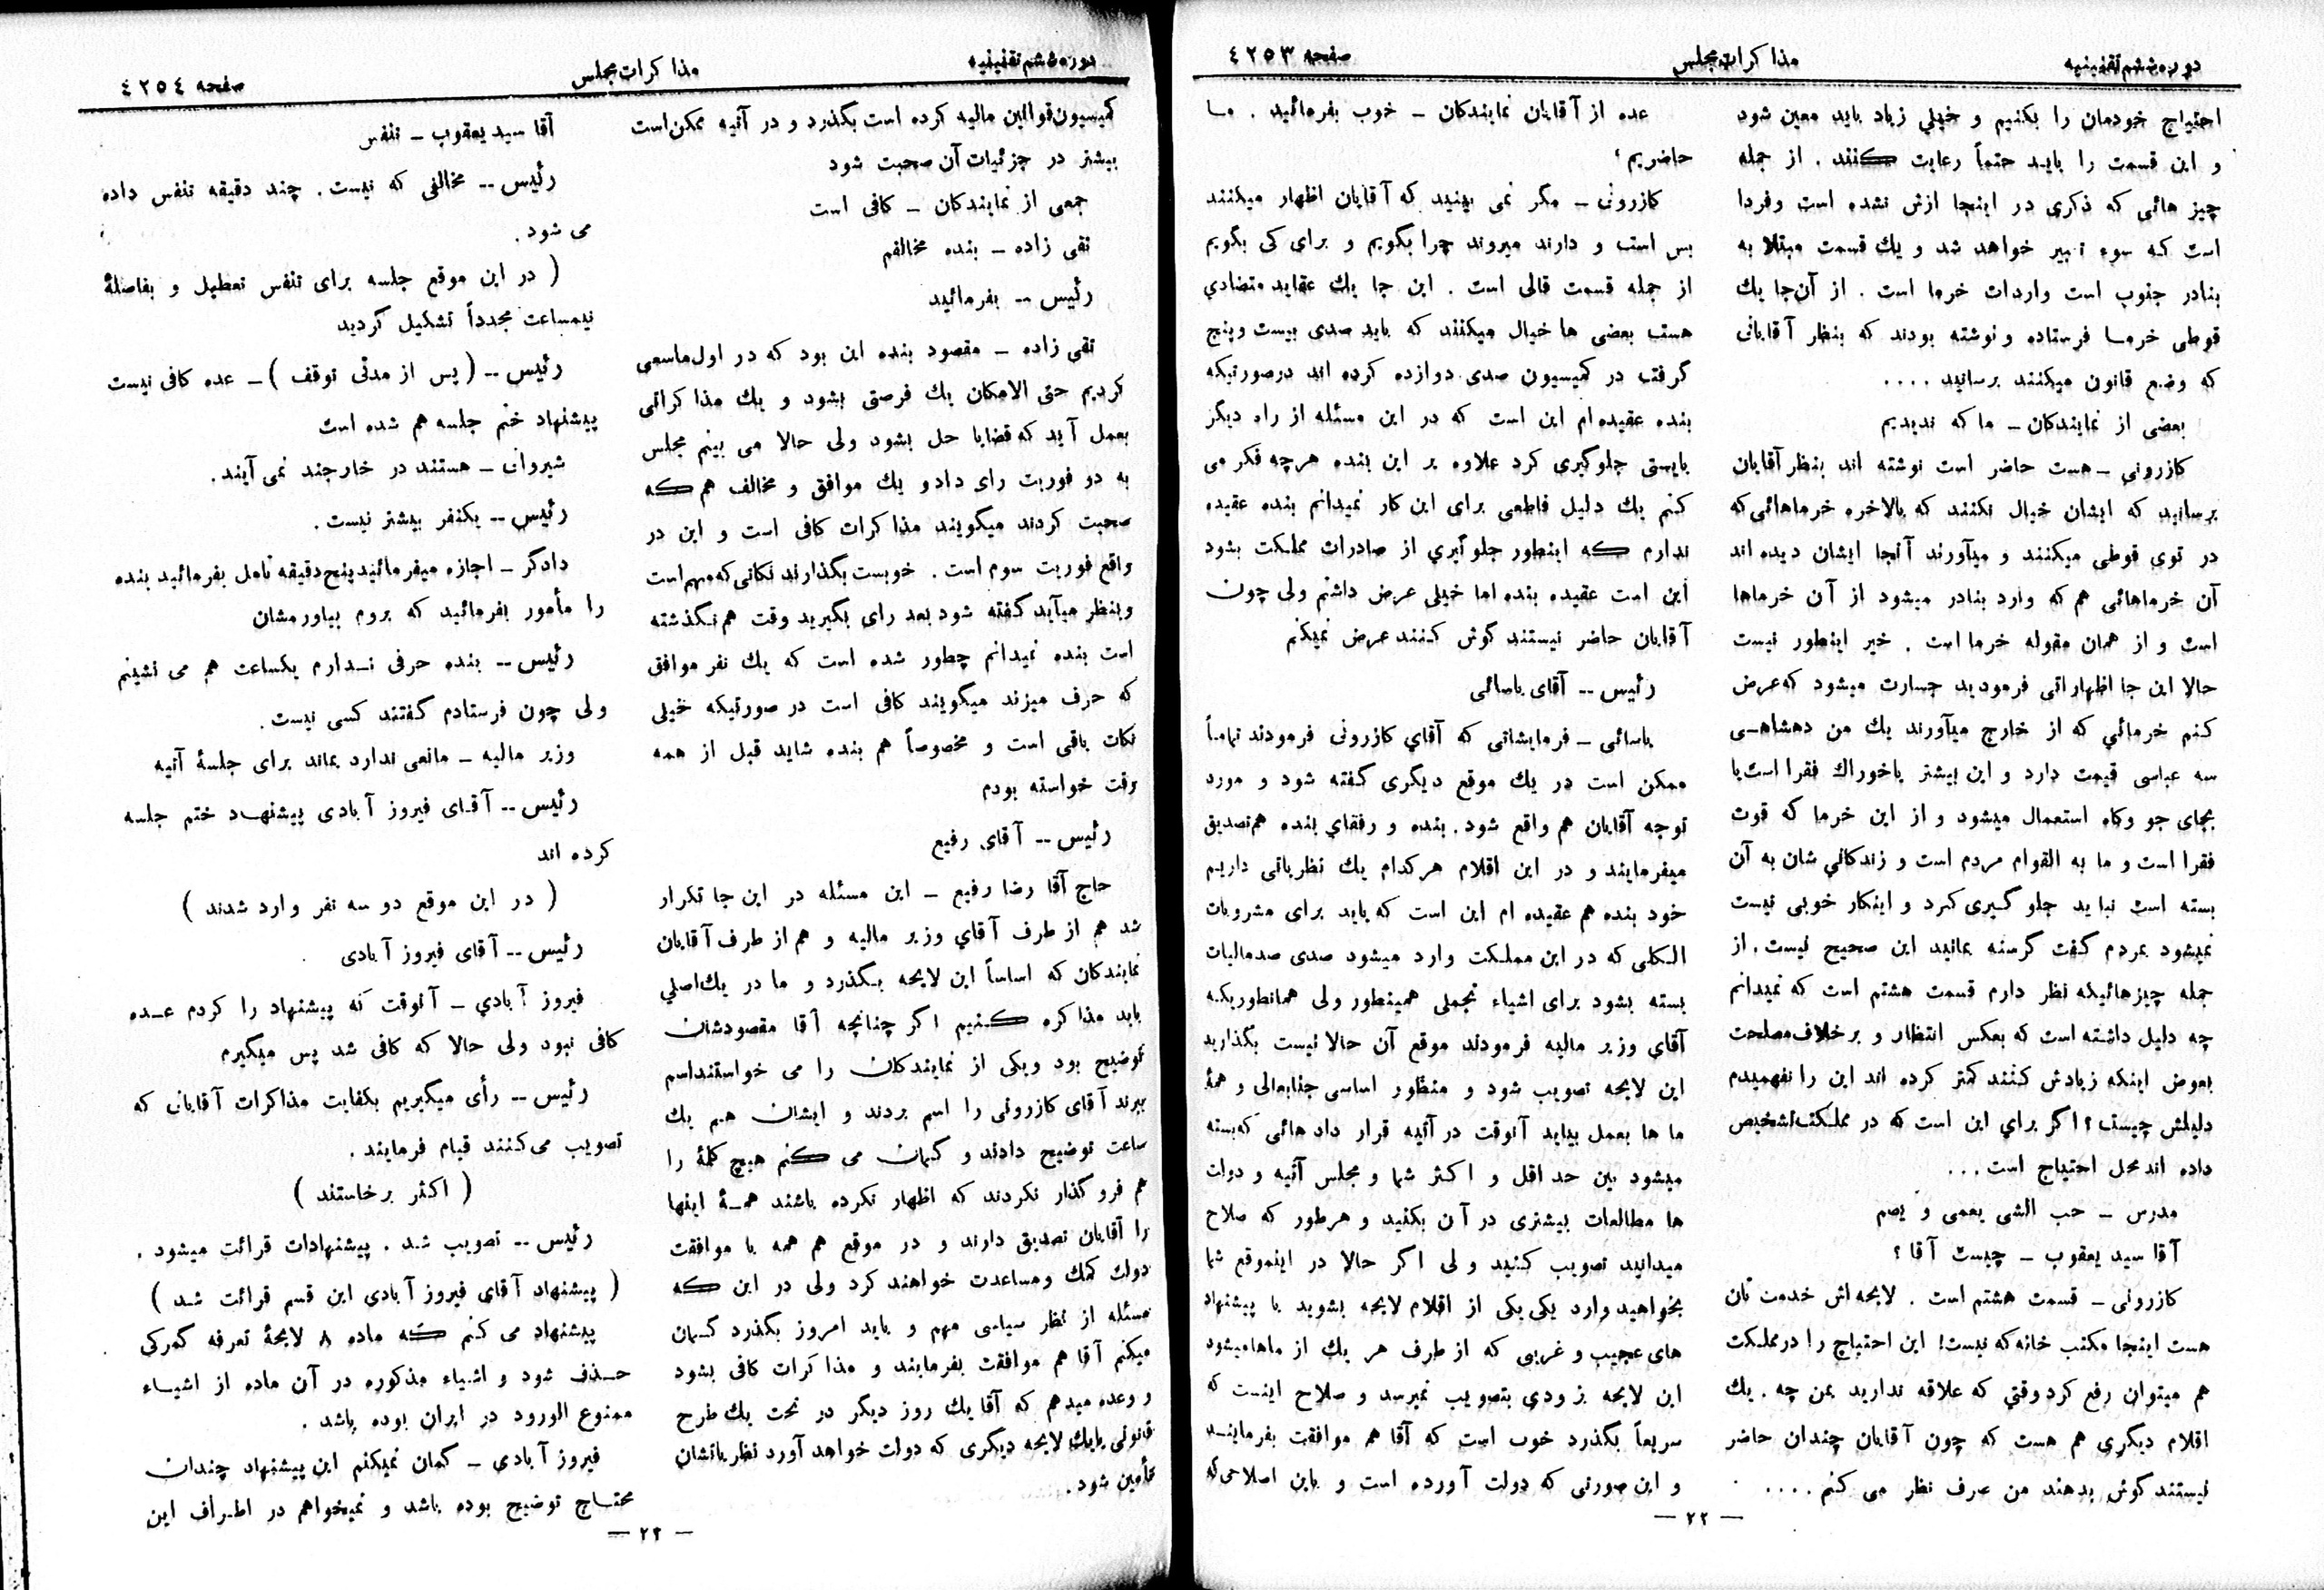 دوره ششم تقنینیه
مذاکرات مجلس
صفحه ٤٢٥٣
احتیاج خودمان را بکنیم و خیلی زیاد باید معین شود
و این قسمت را باید حتماً رعایت کنند . از جمله
چیز هائی که ذکری در اینجا ازش نشده است و فردا
است که سوء تعبیر خواهد شد و یك قسمت مبتلا به
بنادر جنوب است واردات خرما است . از آن جا یك
قوطی خرما فرستاده و نوشته بودند که بنظر آقایانی
که وضع قانون میکنند برسانید ....
بعضی از نمایندکان ـ ما که ندیدیم
کازرونی ـ هست حاضر است نوشته اند بنظر آقایان
برسانید که ایشان خیال نکنند که بالاخره خرماهائی که
در توی قوطی میکنند و میآورند آنجا ایشان دیده اند
آن خرماهائی هم که وارد بنادر میشود از آن خرماها
است و از همان مقوله خرما است . خیر اینطور نیست
حالا این جا اظهاراتی فرمودید جسارت میشود که عرض
کنم خرمائی که از خارج میآورند یك من دهشاهی
سه عباسی قیمت دارد و این بیشتر یا خوراك فقرا است یا
بجای جو و کاه استعمال میشود و از این خرما که قوت
فقرا است و ما به القوام مردم است و زندکانی شان به آن
بسته است نباید جلو گیری کرد و اینکار خوبی نیست
نمیشود بمردم کفت کرسنه بمانید این صحیح نیست . از
جمله چیزهائیکه نظر دارم قسمت هشتم است که نمیدانم
چه دلیل داشته است که بعکس انتظار و برخلاف مصلحت
بعوض اینکه زیادش کنند کمتر کرده اند این را نفهمیدم
دلیلش چیست ؟ اکر برای این است که در مملکت تشخیص
داده اند محل احتیاج است ...
مدرس ـ حب الشی یعمی و یصم
آقا سید یعقوب ـ چیست آقا ؟
کازرونی ـ قسمت هشتم است . لایحه اش خدمت تان
هست اینجا مکتب خانه که نیست! این احتیاج را در مملکت
هم میتوان رفع کرد وقتی که علاقه ندارید بمن چه . یك
اقلام دیگری هم هست که چون آقایان چندان حاضر
نیستند کوش بدهند من صرف نظر می کنم ....
عده از آقایان نمایندکان ـ خوب بفرمائید . ما
حاضریم ؛
کازرونی ـ مگر نمی بینید که آقایان اظهار میکنند
بس است و دارند میروند چرا بگویم و برای کی بگویم
از جمله قسمت قالی است . این جا یك عقاید متضادی
هست بعضی ها خیال میکنند که باید صدی بیست و پنج
گرفت در کمیسیون صدی دوازده کرده اند درصورتیکه
بنده عقیده ام این است که در این مسئله از راه دیگر
بایستی جلوگیری کرد علاوه بر این بنده هرچه فکر می
کنم یك دلیل قاطعی برای این کار نمیدانم بنده عقیده
ندارم که اینطور جلوگیری از صادرات مملکت بشود
این است عقیده بنده اما خیلی عرض داشتم ولی چون
آقایان حاضر نیستند گوش کنند عرض نمیکنم
رئیس -- آقای یاسائی
یاسائی ـ فرمایشاتی که آقای کازرونی فرمودند تماماً
ممکن است در یك موقع دیگری گفته شود و مورد
توجه آقایان هم واقع شود . بنده و رفقای بنده هم تصدیق
میفرمایند و در این اقلام هرکدام یك نظریاتی داریم
خود بنده هم عقیده ام این است که باید برای مشروبات
الکلی که در این مملکت وارد میشود صدی صد مالیات
بسته بشود برای اشیاء تجملی همینطور ولی همانطوریکه
آقای وزیر مالیه فرمودند موقع آن حالا نیست بگذارید
این لایحه تصویب شود و منظور اساسی جنابعالی و همۀ
ما ها بعمل بیاید آنوقت در آتیه قرار داد هائی که بسته
میشود بین حد اقل و اکثر شما و مجلس آتیه و دولت
ها مطالعات بیشتری در آن بکنید و هرطور که صلاح
میدانید تصویب کنید ولی اگر حالا در اینموقع شما
بخواهید وارد یکی یکی از اقلام لایحه بشوید با پیشنهاد
های عجیب و غریبی که از طرف هر یك از ماها میشود
این لایحه بزودی بتصویب نمیرسد و صلاح اینست که
سریعاً بگذرد خوب است که آقا هم موافقت بفرمایند
و این صورتی که دولت آورده است و باین اصلاحی که
ـ ٢٢ ـ
دوره ششم تقنینیه
مذاکرات مجلس
صفحه ٤٢٥٤
کمیسیون قوانین مالیه کرده است بگذرد و در آتیه ممکن است
بیشتر در جزئیات آن صحبت شود
جمعی از نمایندکان ـ کافی است
تقی زاده ـ بنده مخالفم
رئیس -- بفرمائید
تقی زاده ـ مقصود بنده این بود که در اول ما سعی
کردیم حتی الامکان یك فرصتی بشود و یك مذاکراتی
بعمل آید که قضایا حل بشود ولی حالا می بینم مجلس
به دو فوریت رای داد و یك موافق و مخالف هم که
صحبت کردند میگویند مذاکرات کافی است و این در
واقع فوریت سوم است . خوبست بگذارند نکاتی که مهم است
و بنظر میآید گفته شود بعد رای بگیرید وقت هم نگذشته
است بنده نمیدانم چطور شده است که یك نفر موافق
که حرف میزند میگویند کافی است در صورتیکه خیلی
نکات باقی است و مخصوصاً هم بنده شاید قبل از همه
وقت خواسته بودم
رئیس -- آقای رفیع
حاج آقا رضا رفیع ـ این مسئله در این جا تکرار
شد هم از طرف آقای وزیر مالیه و هم از طرف آقایان
نمایندکان که اساساً این لایحه بگذرد و ما در یك اصلی
باید مذاکره کنیم اگر چنانچه آقا مقصودشان
توضیح بود و یکی از نمایندکان را می خواستند اسم
ببرند آقای کازرونی را اسم بردند و ایشان هم یك
ساعت توضیح دادند و گمان می کنم هیچ کلمۀ را
هم فرو گذار نکردند که اظهار نکرده باشند همۀ اینها
را آقایان تصدیق دارند و در موقع هم همه با موافقت
دولت کمك و مساعدت خواهند کرد ولی در این که
مسئله از نظر سیاسی مهم و باید امروز بگذرد گمان
میکنم آقا هم موافقت بفرمایند و مذاکرات کافی بشود
و وعده میدهم که آقا یك روز دیگر در تحت یك طرح
قانونی یا یك لایحه دیگری که دولت خواهد آورد نظریاتشان
تأمین شود .
آقا سید یعقوب ـ تنفس
رئیس -- مخالفی که نیست . چند دقیقه تنفس داده
می شود .
( در این موقع جلسه برای تنفس تعطیل و بفاصلۀ
نیمساعت مجدداً تشکیل گردید
رئیس -- ( پس از مدتی توقف ) ـ عده کافی نیست
پیشنهاد ختم جلسه هم شده است
شیروانی ـ هستند در خارجند نمی آیند .
رئیس -- یکنفر بیشتر نیست .
دادگر ـ اجازه میفرمائید پنج دقیقه تامل بفرمائید بنده
را مأمور بفرمائید که بروم بیاورمشان
رئیس -- بنده حرفی ندارم یکساعت هم می نشینم
ولی چون فرستادم گفتند کسی نیست .
وزیر مالیه ـ مانعی ندارد بماند برای جلسۀ آتیه
رئیس -- آقای فیروز آبادی پیشنهاد ختم جلسه
کرده اند
( در این موقع دو سه نفر وارد شدند )
رئیس -- آقای فیروز آبادی
فیروز آبادی ـ آنوقت که پیشنهاد را کردم عده
کافی نبود ولی حالا که کافی شد پس میگیرم
رئیس -- رأی میگیریم بکفایت مذاکرات آقایانی که
تصویب می کنند قیام فرمایند .
( اکثر برخاستند )
رئیس -- تصویب شد . پیشنهادات قرائت میشود .
( پیشنهاد آقای فیروز آبادی این قسم قرائت شد )
پیشنهاد می کنم که ماده ۸ لایحۀ تعرفه گمرکی
حذف شود و اشیاء مذکوره در آن ماده از اشیاء
ممنوع الورود در ایران بوده باشد .
فیروز آبادی ـ گمان نمیکنم این پیشنهاد چندان
محتاج توضیح بوده باشد و نمیخواهم در اطراف این
ـ ٢٣ ـ